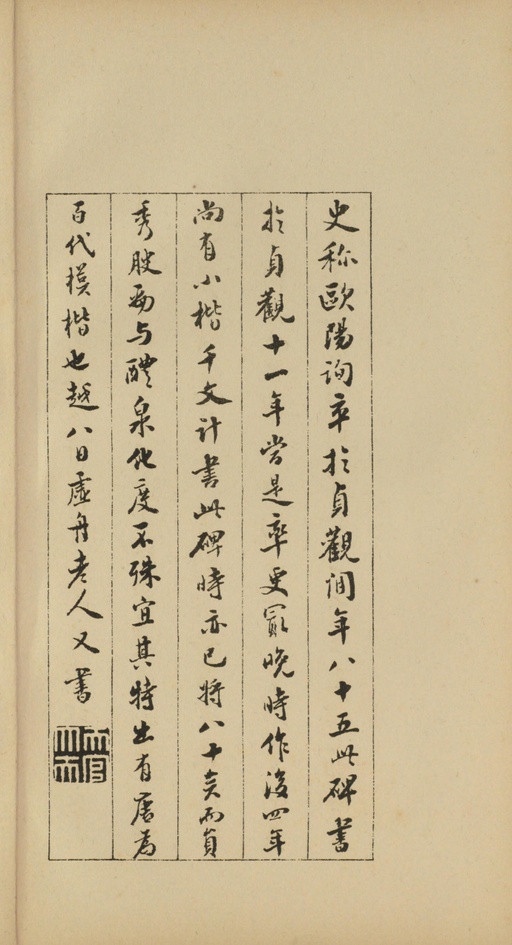 史称歐陽詢卒於貞觀間年八十五此碑書
於貞觀十一年當是率更最晚時作後四年
尚有小楷千文計書此碑時亦已將八十矣而貞
秀腴勁与醴泉化度不殊宜其特出有唐為
百代模楷也越八日虛舟老人又書